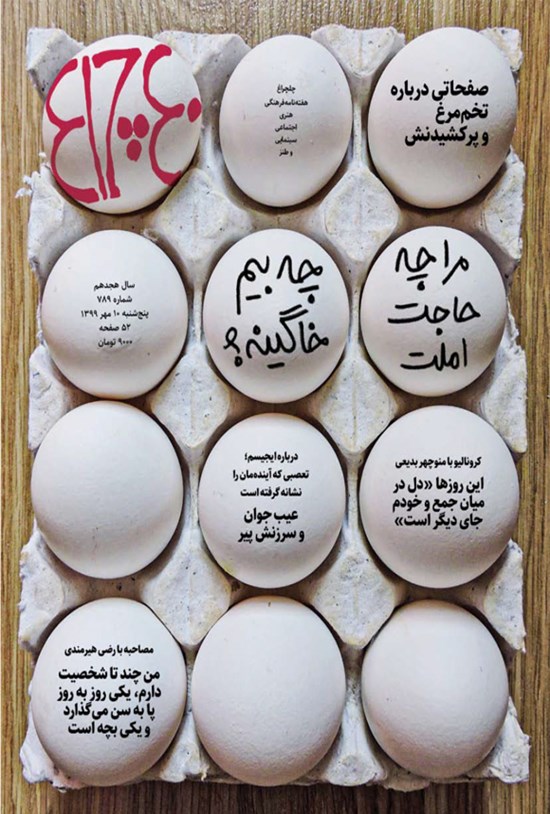 ۴۰چراغ
چلچراغ
هفته‌نامه فرهنگی
هنری
اجتماعی
سینمایی
و طنز
صفحاتی درباره
تخم‌مرغ
و پرکشیدنش
مرا چه
حاجت
املت
چه بیم
خاگینه؟
سال هجدهم
شماره ۷۸۹
پنج‌شنبه ۱۰ مهر ۱۳۹۹
۵۲ صفحه
۹۰۰۰ تومان
کرونالیو با منوچهر بدیعی
این روزها «دل در
میان جمع و خودم
جای دیگر است»
درباره ایجیسم؛
تعصبی که آینده‌مان را
نشانه گرفته است
عیب جوان
و سرزنش پیر
مصاحبه با رضی هیرمندی
من چند تا شخصیت
دارم، یکی روز به روز
پا به سن می‌گذارد
و یکی بچه است